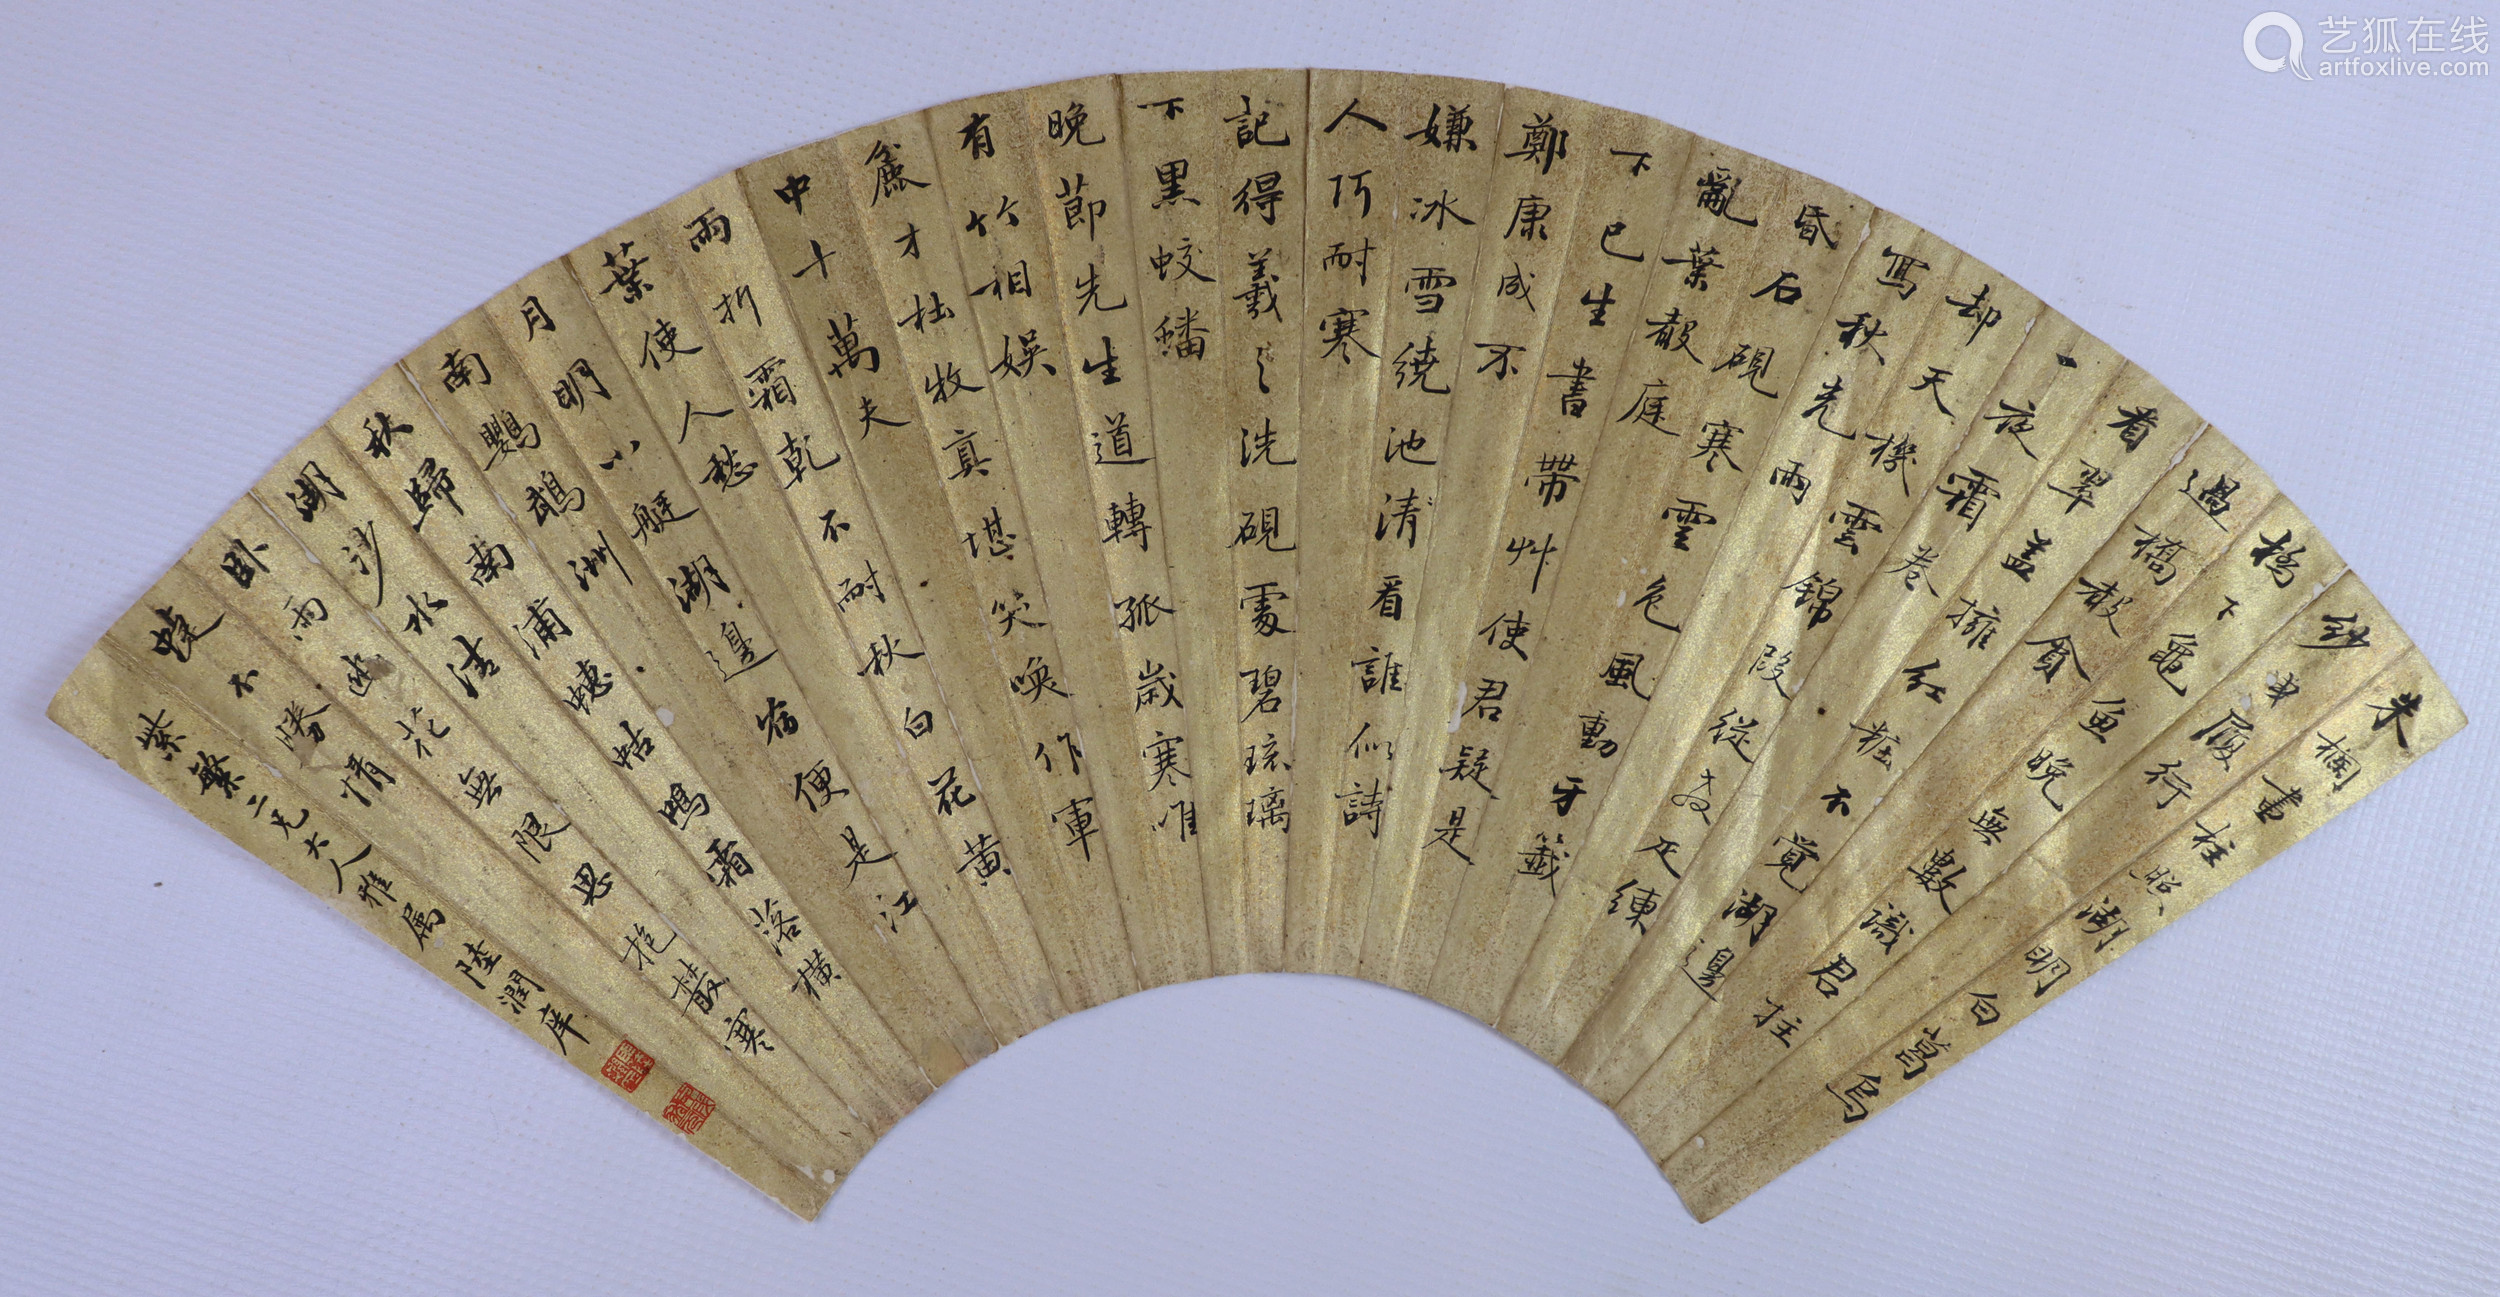 朱欄畫柱照湖明白葛烏
紗曳履行
橋下龜魚晚無數識君拄
過橋聲貪
看翠蓋擁紅粧不覺湖邊
一夜霜卷
却天機雲錦段從教疋練
寫秋光雨
昏石硯寒雲色風動牙籤
亂葉聲庭
下已生書帶艸使君疑是
鄭康成不
嫌冰雪繞池清看誰似詩
人巧耐寒
記得羲之洗硯處碧琉璃
下黑蛟蟠
晚節先生道轉孤歲寒唯
有竹相娛
麤才杜牧真堪笑喚作軍
中十萬夫
雨折霜乾不耐秋白花黃
葉使人愁
月明小艇湖邊宿便是江
南鸚鵡洲
秋歸南浦蟪蛄鳴霜落橫
湖沙水清
臥雨幽花無限思抱叢寒
蜨不勝情
紫繁二兄大人雅属 陸潤庠
艺狐在线
artfoxlive.com